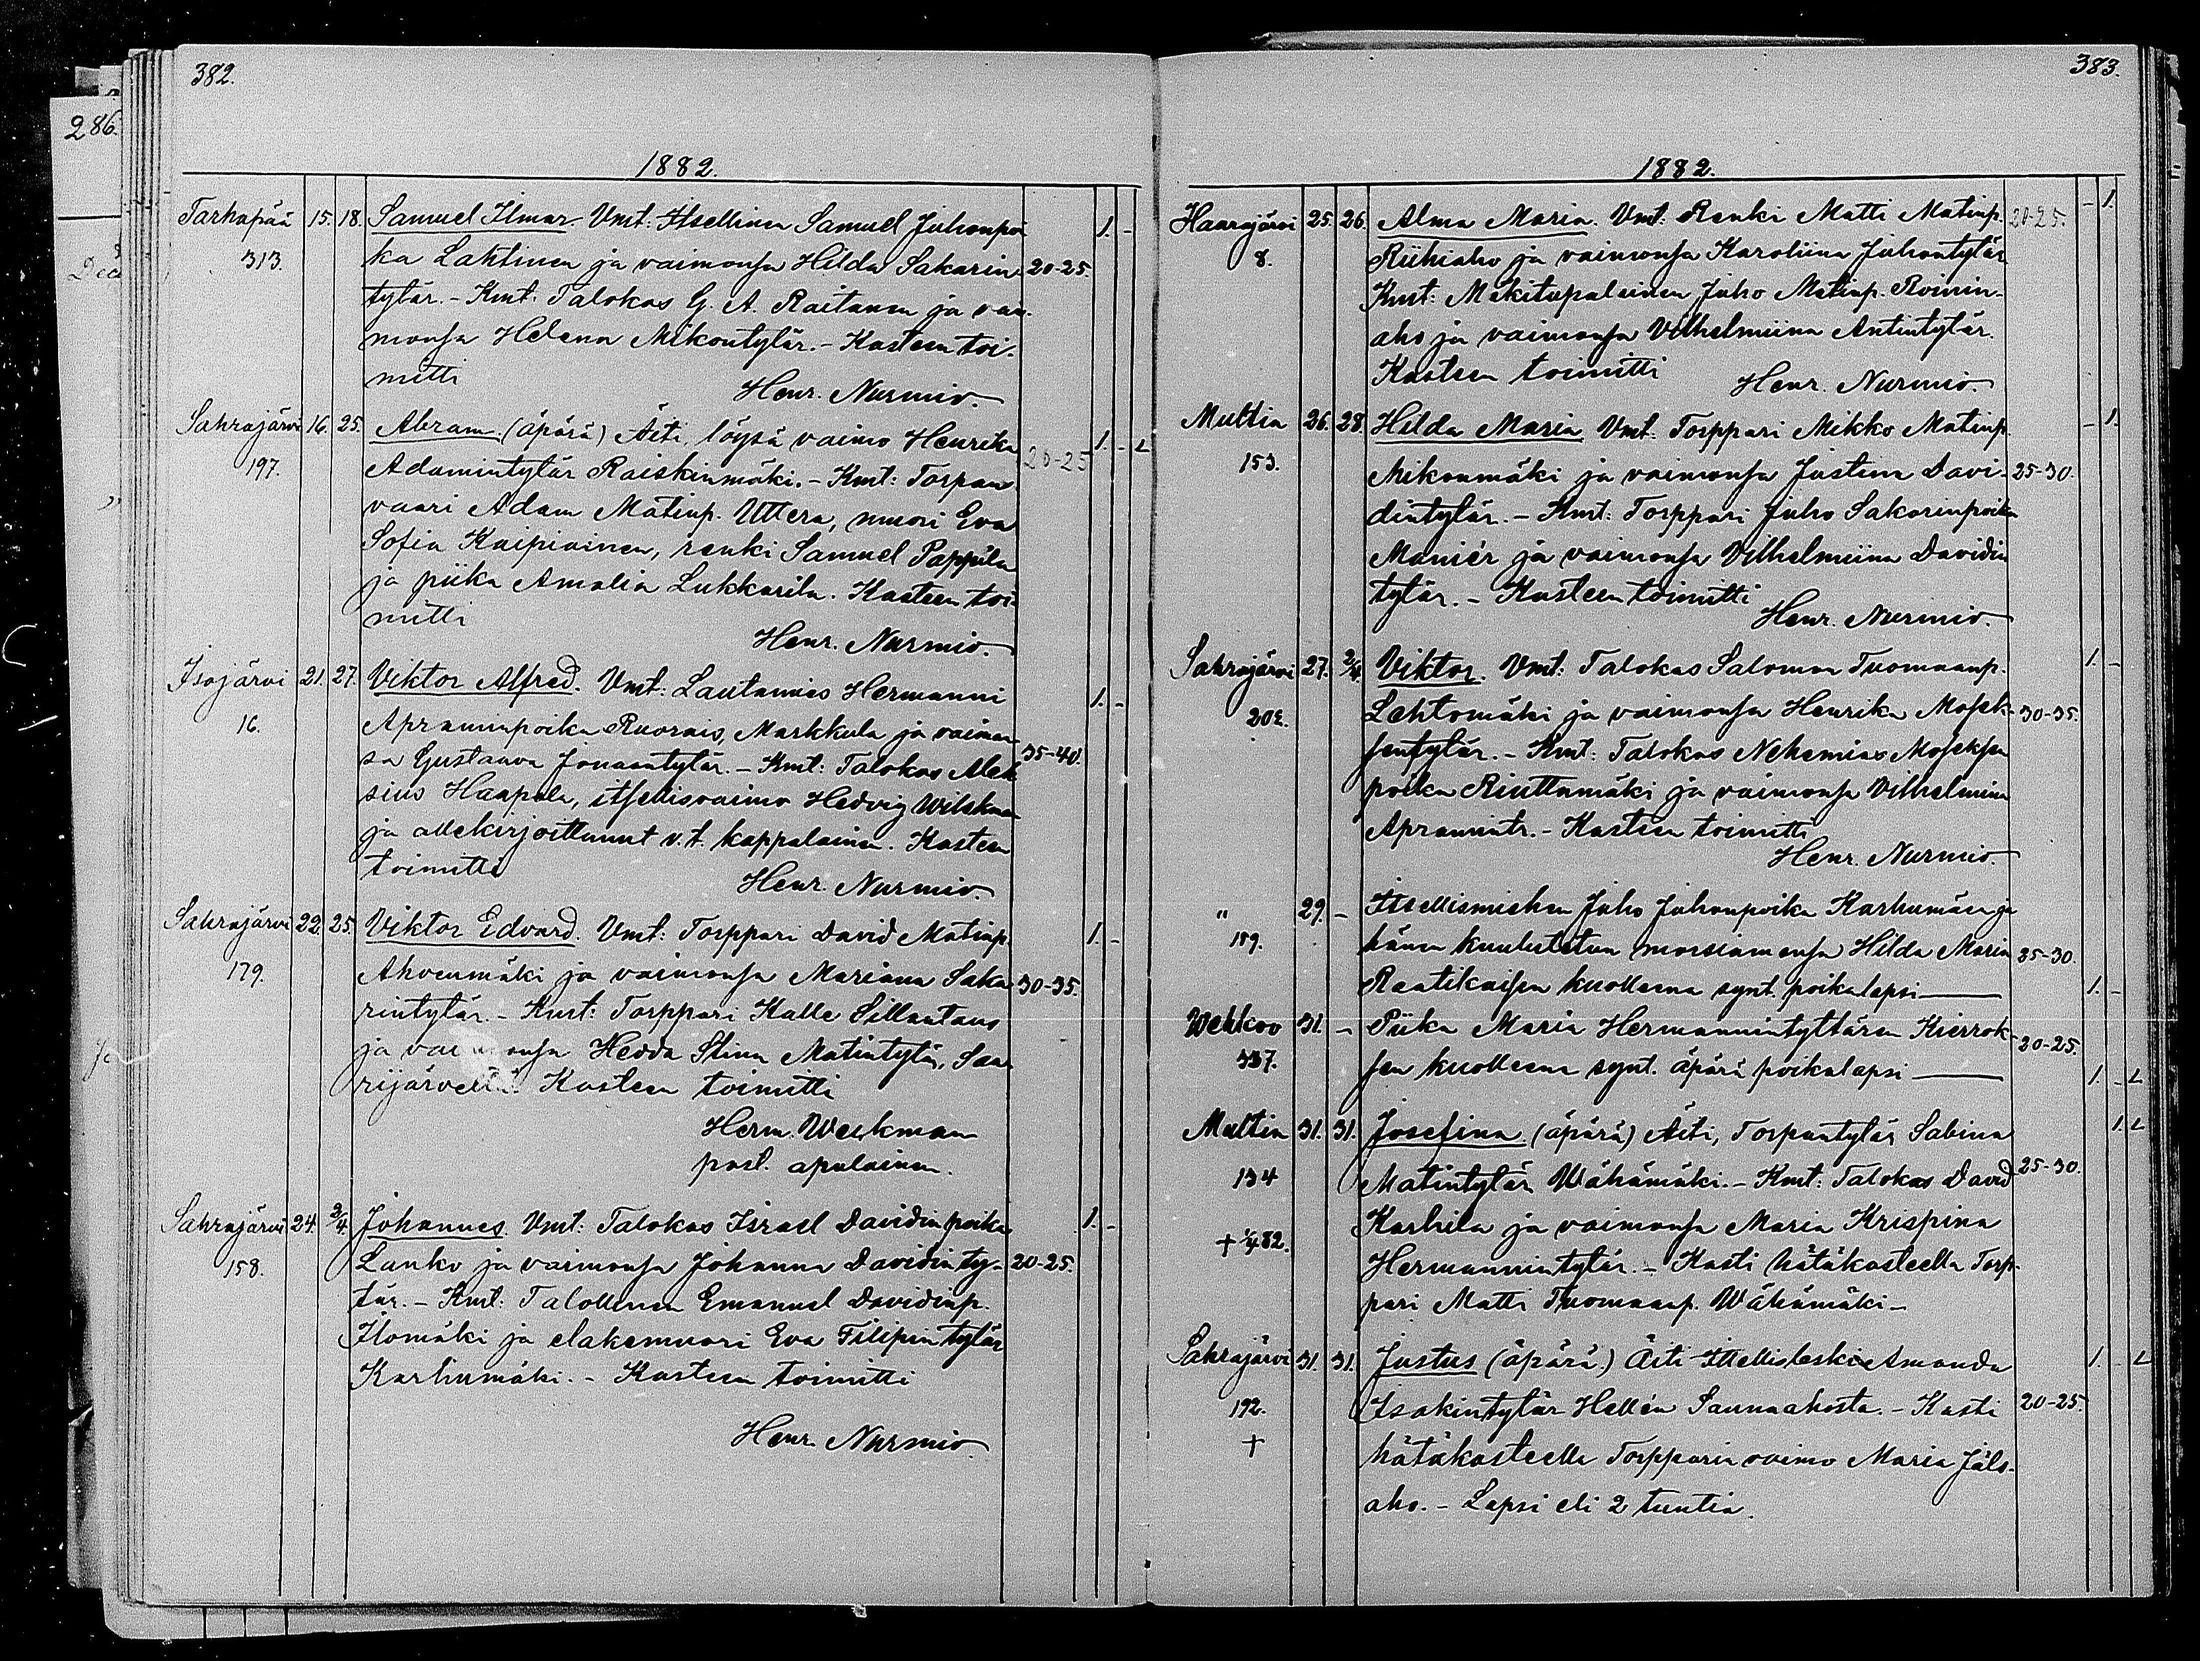 382.
286.
1882.
Tarhapää 15. 18. Samuel Ilmar. Vmt: Itsellinen Samuel Juhonpoi
313. ka Lahtinen ja vaimonsa Hilda Sakarin 20-25. 1. -
tytär. - Kmt: Talokas G. A. Raitanen ja vai-
monsa Helena Mikontytär. - Kasteen toi-
mitti
Henr. Nurmio.
Sahrajärvi 16. 25. Abram. (äpärä) Äiti, löysä vaimo Henrika 1. - L
197. Adamintytär Raiskinmäki. - Kmt: Torpan 20-25
vaari Adam Matinp. Uttera, muori Eva
Sofia Kaipiainen, renki Samuel Pappila
ja piika Amalia Lukkarila. Kasteen toi-
mitti
Henr. Nurmio.
Isojärvi 21. 27. Viktor Alfred. Vmt: Lautamies Hermanni 1. -
16. Apraminpoika Ruorais Markkula ja vaimon
sa Gustaava Jonaantytär. - Kmt: Talokas Alek 35-40.
sius Haapala, itsellisvaimo Hedvig Wilskman
ja allekirjoittanut v.t. kappalainen. Kasteen
toimitti
Henr. Nurmio.
Sahrajärvi 22. 25. Viktor Edvard. Vmt: Torppari David Matinp. 1. -
179. Ahvenmäki ja vaimonsa Mariana Saka 30-35.
rintytär. - Kmt: Torppari Kalle Sillantaus
ja vaimonsa Hedda Stina Matintytär, Saa
rijärveltä. Kasteen toimitti
Herm. Weckman
past. apulainen.
Sahrajärvi 24. 2/4. Johannes. Vmt: Talokas Israel Davidinpoika 1. -
158. Lanko ja vaimonsa Johanna Davidinty- 20-25.
tär. - Kmt: Talollinen Emanuel Davidinp.
Ilomäki ja elakemuori Eva Filipintytär
Karhumäki. - Kasteen toimitti
Henr. Nurmio
383.
1882.
Haarajärvi 25. 26. Alma Maria. Vmt: Renki Matti Matinp. 20-25. - 1.
8. Riihiaho ja vaimonsa Karoliina Juhontytär
Kmt: Mäkitupalainen Juho Matinp. Roinin-
aho ja vaimonsa Vilhelmiina Antintytär.
Kasteen toimitti
Henr. Nurmio
Multia 26. 28. Hilda Maria. Vmt: Torppari Mikko Matinp - 1.
153. Mikonmäki ja vaimonsa Justina Davi- 25-30.
dintytär. - Kmt: Torppari Juho Sakarinpoika
Maniér ja vaimonsa Vilhelmiina Davidin
tytär. - Kasteen toimitti
Henr. Nurmio.
Sahrajärvi 27. 2/4. Viktor. Vmt: Talokas Salomon Tuomaanp. 1. -
202. Lehtomäki ja vaimonsa Henrika Mosek- 30-35.
sentytär. - Kmt: Talokas Nehemias Moseksen
poika Riuttamäki ja vaimonsa Vilhelmiina
Apramintr. - Kasteen toimitti
Henr. Nurmio.
" 29. - Itsellismiehen Juho Juhonpoika Karhumäen ja
189. hänen kuulutetun morsiamensa Hilda Maria 25-30.
Raatikaisen kuolleena synt. poikalapsi 1. -
Wehkoo 31. - Piika Maria Hermannintyttären Kierrok- 20-25.
337. sen kuolleena synt. äpärä poikalapsi 1. - L
Multia 31. 31. Josefina (äpärä) Äiti, Torpantytär Sabina 1. L
134 Matintytär Wähämäki. - Kmt: Talokas David 25-30.
Karhila ja vaimonsa Maria Krispina
+ 1/4 82. Hermannintytär. - Kasti hätäkasteella Torp-
pari Matti Tuomaanp. Wähämäki -
Sahrajärvi 31. 31. Justus (äpärä.) Äiti Itsellisleski Amanda 1. - L
192. Isakintytär Hellén Saunaahosta. - Kasti 20-25.
+ hätäkasteella Torpparin vaimo Maria Jäls-
aho. - Lapsi eli 2 tuntia.